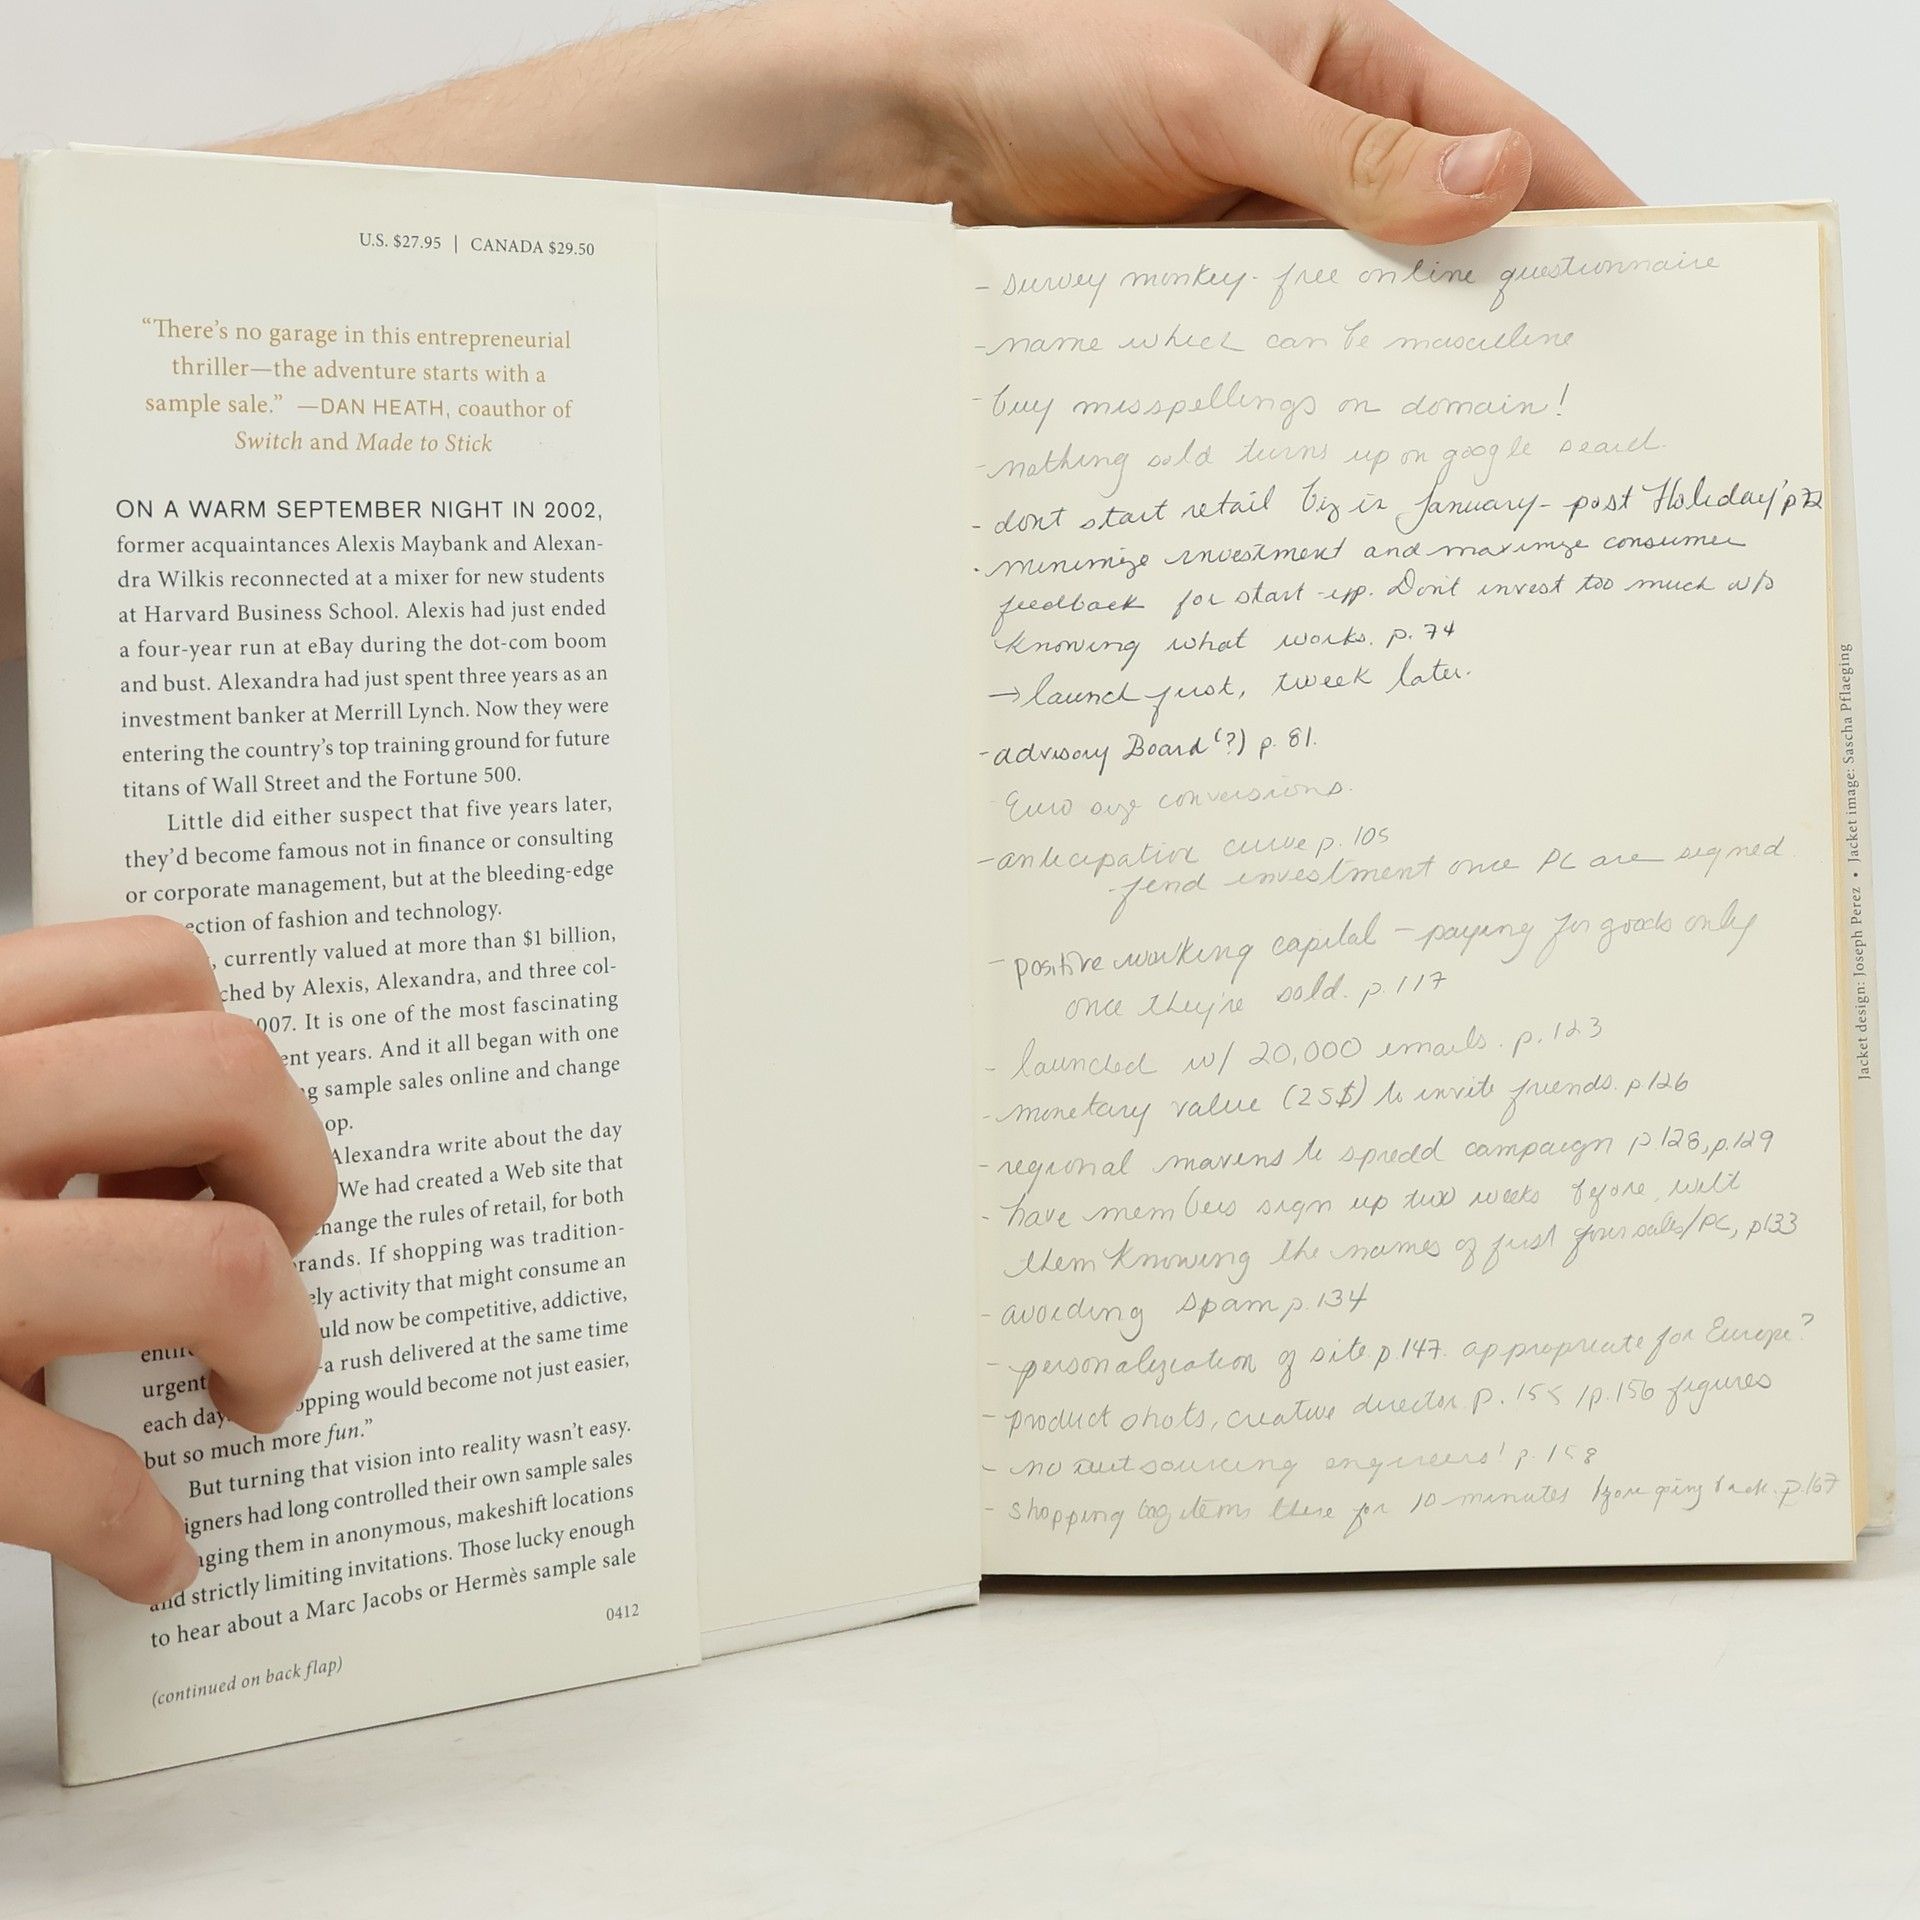 U.S. $27.95 | CANADA $29.50
“There’s no garage in this entrepreneurial
thriller—the adventure starts with a
sample sale.” —DAN HEATH, coauthor of
Switch and Made to Stick
ON A WARM SEPTEMBER NIGHT IN 2002,
former acquaintances Alexis Maybank and Alexan-
dra Wilkis reconnected at a mixer for new students
at Harvard Business School. Alexis had just ended
a four-year run at eBay during the dot-com boom
and bust. Alexandra had just spent three years as an
investment banker at Merrill Lynch. Now they were
entering the country’s top training ground for future
titans of Wall Street and the Fortune 500.
Little did either suspect that five years later,
they’d become famous not in finance or consulting
or corporate management, but at the bleeding-edge
ection of fashion and technology.
, currently valued at more than $1 billion,
ched by Alexis, Alexandra, and three col-
007. It is one of the most fascinating
ent years. And it all began with one
g sample sales online and change
op.
Alexandra write about the day
We had created a Web site that
hange the rules of retail, for both
rands. If shopping was tradition-
ely activity that might consume an
uld now be competitive, addictive,
-a rush delivered at the same time
urgent opping would become not just easier,
each day
but so much more fun.”
But turning that vision into reality wasn’t easy.
igners had long controlled their own sample sales
aging them in anonymous, makeshift locations
and strictly limiting invitations. Those lucky enough
to hear about a Marc Jacobs or Hermès sample sale
0412
(continued on back flap)
- survey monkey - free online questionnaire
- name which can be masculine
- buy misspellings on domain!
- nothing sold turns up on google search.
- dont start retail biz in January - post Holiday p72
- minimize investment and maximize consumer
feedback for start-up. Don't invest too much w/o
knowing what works. p. 74
→ launch first, tweek later.
- advisory Board (?) p. 81.
- Euro size conversions.
- anticipation curve p. 105
- find investment once PC are signed.
- positive working capital - paying for goods only
once they're sold. p. 117
- launched w/ 20,000 emails. p. 123
- monetary value (25$) to invite friends. p.126
- regional mavens to spredd campaign p.128, p.129
- have members sign up two weeks before, with
them knowing the names of first four sales/PC, p133
- avoiding spam p. 134
- personalization of site. p.147. appropriate for Europe?
- product shots, creative director p. 155 / p.156 figures
- no outsourcing engineers! p. 158
- shopping bag items there for 10 minutes before going back. p.167
Jacket design: Joseph Perez • Jacket image: Sascha Pflaeging